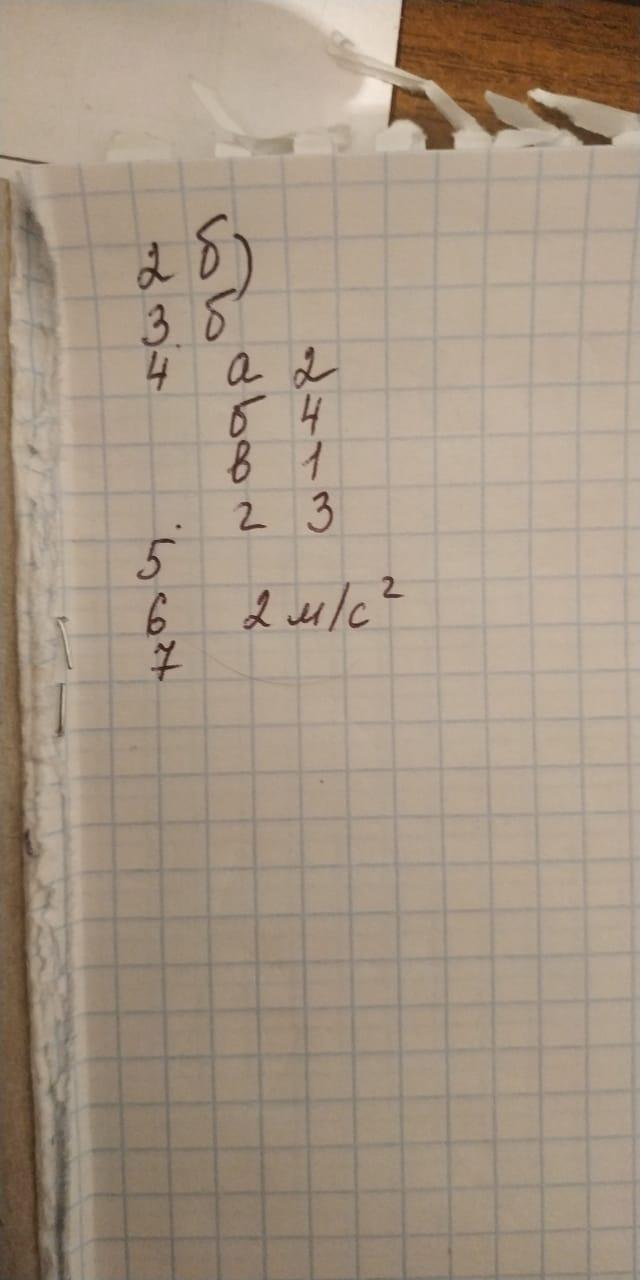 2 б)
3. б
4 а 2
б 4
в 1
г 3
5.
6 2 м/с²
7